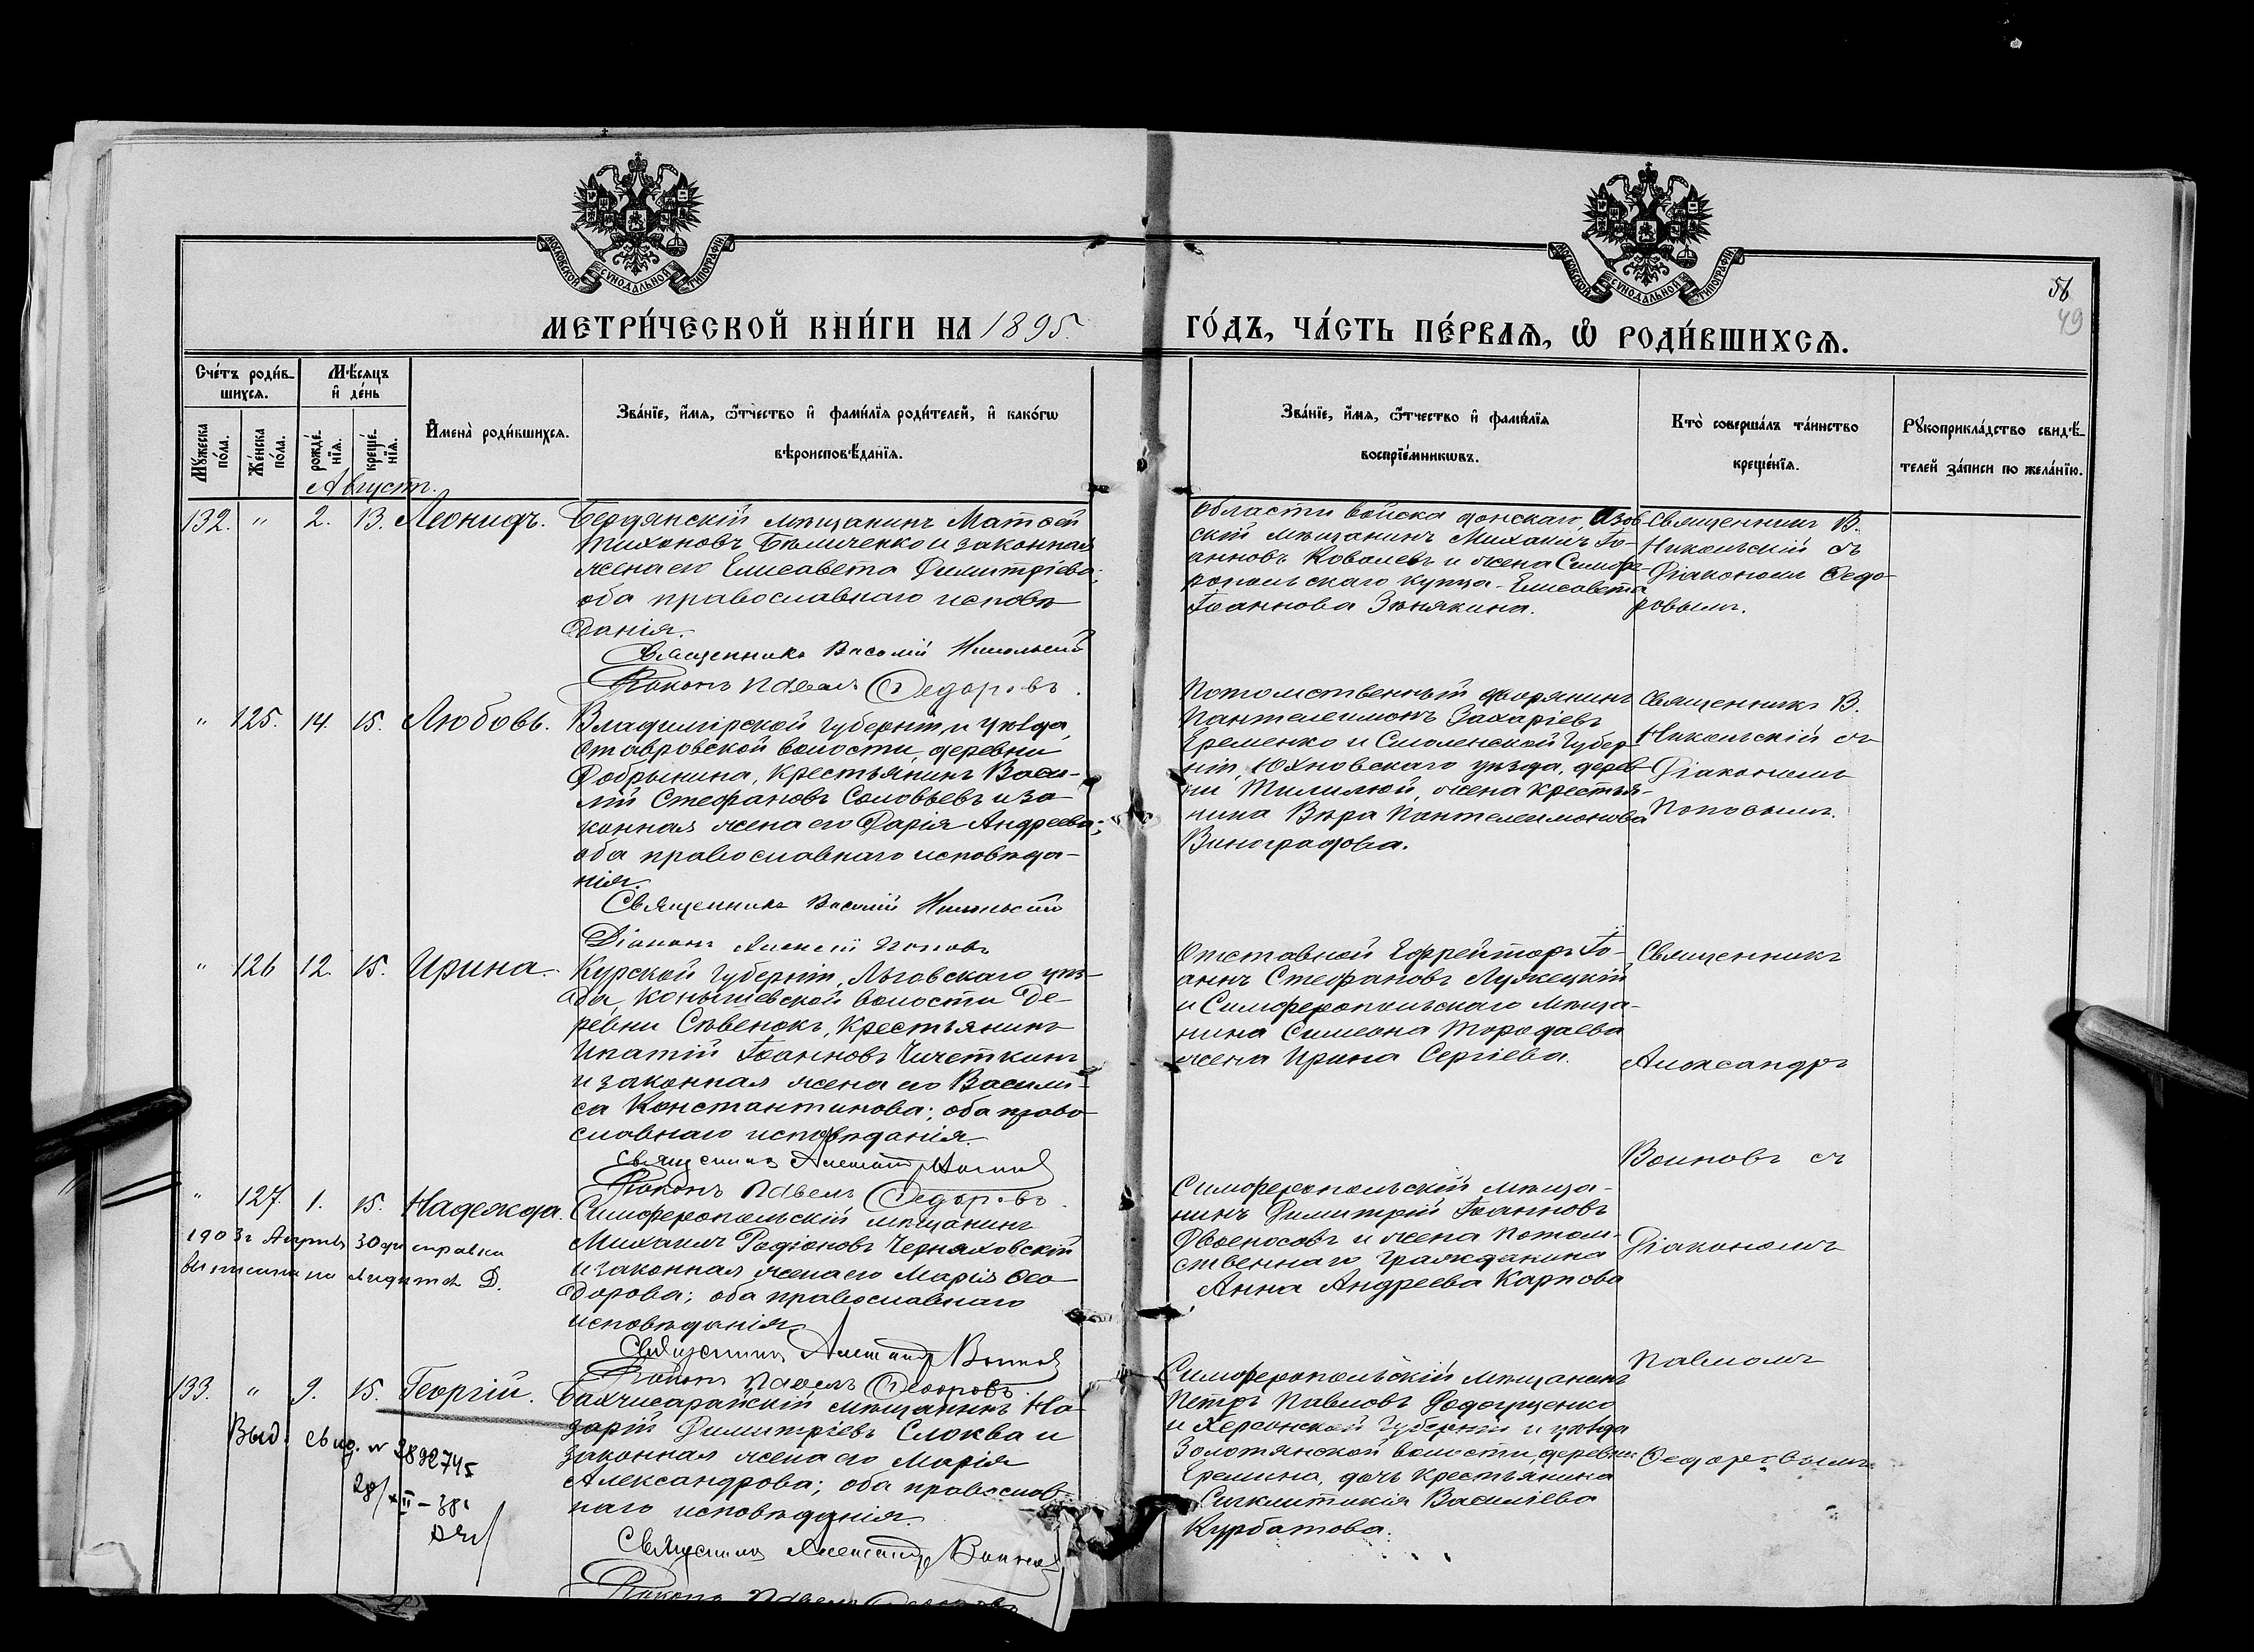 56
49
МОСКОВСКОЙ СУНОДАЛЬНОЙ ТИПОГРАФІИ
МОСКОВСКОЙ СУНОДАЛЬНОЙ ТИПОГРАФІИ
МЕТРИ́ЧЕСКОЙ КНИ́ГИ НА 1895.
ГО́ДЪ, ЧА́СТЬ ПЕ́РВАѦ, Ѡ҆ РОДИ́ВШИХСѦ.
Сче́тъ роди́в-
шихся.
Му́жеска по́ла.
Же́нска по́ла.
Мѣ́сяцъ
и҆ де́нь
рожде́-
нїѧ.
креще́-
нїѧ.
И҆мена̀ роди́вшихся.
Зва́нїе, и҆́мя, ѻ҆́тчество и҆ фамі́лїѧ роди́телей, и҆ како́гѡ
вѣроисповѣ́данїѧ.
Зва́нїе, и҆́мя, ѻ҆́тчество и҆ фамі́лїѧ
воспрїе́мникѡвъ.
Кто̀ соверша́лъ та́инство
креще́нїѧ.
Рꙋкоприкла́дство свидѣ́-
телей за́писи по жела́нїю.
Августъ.
132. " 2. 13. Леонидъ.
Бердянскій мѣщанинъ Матѳей
Тихоновъ Бѣличенко и законная
жена его Елисавета Димитріева;
оба православнаго исповѣ
данія.
Священникъ Василій Никольскій
Діаконъ Павелъ Ѳедоровъ.
Области войска донскаго, Азов-
скій мѣщанинъ Михаилъ Іо-
анновъ Ковалевъ и жена Симфе-
ропольскаго купца Елисавета
Іоаннова Зенякина.
Священникъ В.
Никольскій съ
Діакономъ Ѳедо-
ровымъ.
" 125. 14. 15. Любовь.
Владимірской губерніи и уѣзда,
Ставровской волости, деревни
Добрынина, крестьянинъ Васи-
лій Стефановъ Соловьевъ и за-
конная жена его Дарія Андреева;
оба православнаго исповѣда-
нія.
Священникъ Василій Никольскій
Діаконъ Алексій Поповъ
Потомственный дворянинъ
Пантелеимонъ Захаріевъ
Еременко и Смоленской Губер-
ніи, Юхновскаго уѣзда, дерев-
ни жена крестья-
нина Вѣра Пантелеимонова
Виноградова.
Священникъ В.
Никольскій съ
Діакономъ
Поповымъ.
" 126 12. 15. Ирина.
Курской губерніи, Льговскаго уѣз-
да, Конышевской волости де-
ревни Сѣвенокъ, крестьянинъ
Ипатій Іоанновъ Чисткинъ
и законная жена его Васили-
са Константинова; оба право-
славнаго исповѣданія.
Священникъ Александръ Воиновъ
Діаконъ Павелъ Ѳедоровъ.
Отставной Ефрейторъ Іо-
аннъ Стефановъ Лужецкій
и Симферопольскаго мѣща-
нина Симеона
жена Ирина Сергіева.
Священникъ
Александръ
Воиновъ съ
Діакономъ
Павломъ
Ѳедоровымъ.
" 127. 1. 15. Надежда.
1903 г Апрѣля 30 дня справка
выписана
Симферопольскій мѣщанинъ
Михаилъ Родіоновъ Черняховскій
и законная жена его Марія Ѳео-
дорова; оба православнаго
исповѣданія.
Священникъ Александръ Воиновъ
Діаконъ Павелъ Ѳедоровъ.
Симферопольскій мѣща-
нинъ Димитрій Іоанновъ
Двоеносовъ и жена потом-
ственнаго гражданина
Анна Андреева Карпова
133. " 9. 15. Георгій.
Выд. свид. №
Бахчисарайскій мѣщанинъ На-
зарій Димитріевъ Слоква и
законная жена его Марія
Александрова; оба православ-
наго исповѣданія.
Священникъ Александръ Воиновъ
Діаконъ Павелъ Ѳедоровъ
Симферопольскій мѣщанинъ
Петръ Павловъ
и Херсонской Губерніи и уѣзда
волости, деревни
Еремина, дочь крестьянина
Сигклитикія Василіева
Курбатова.